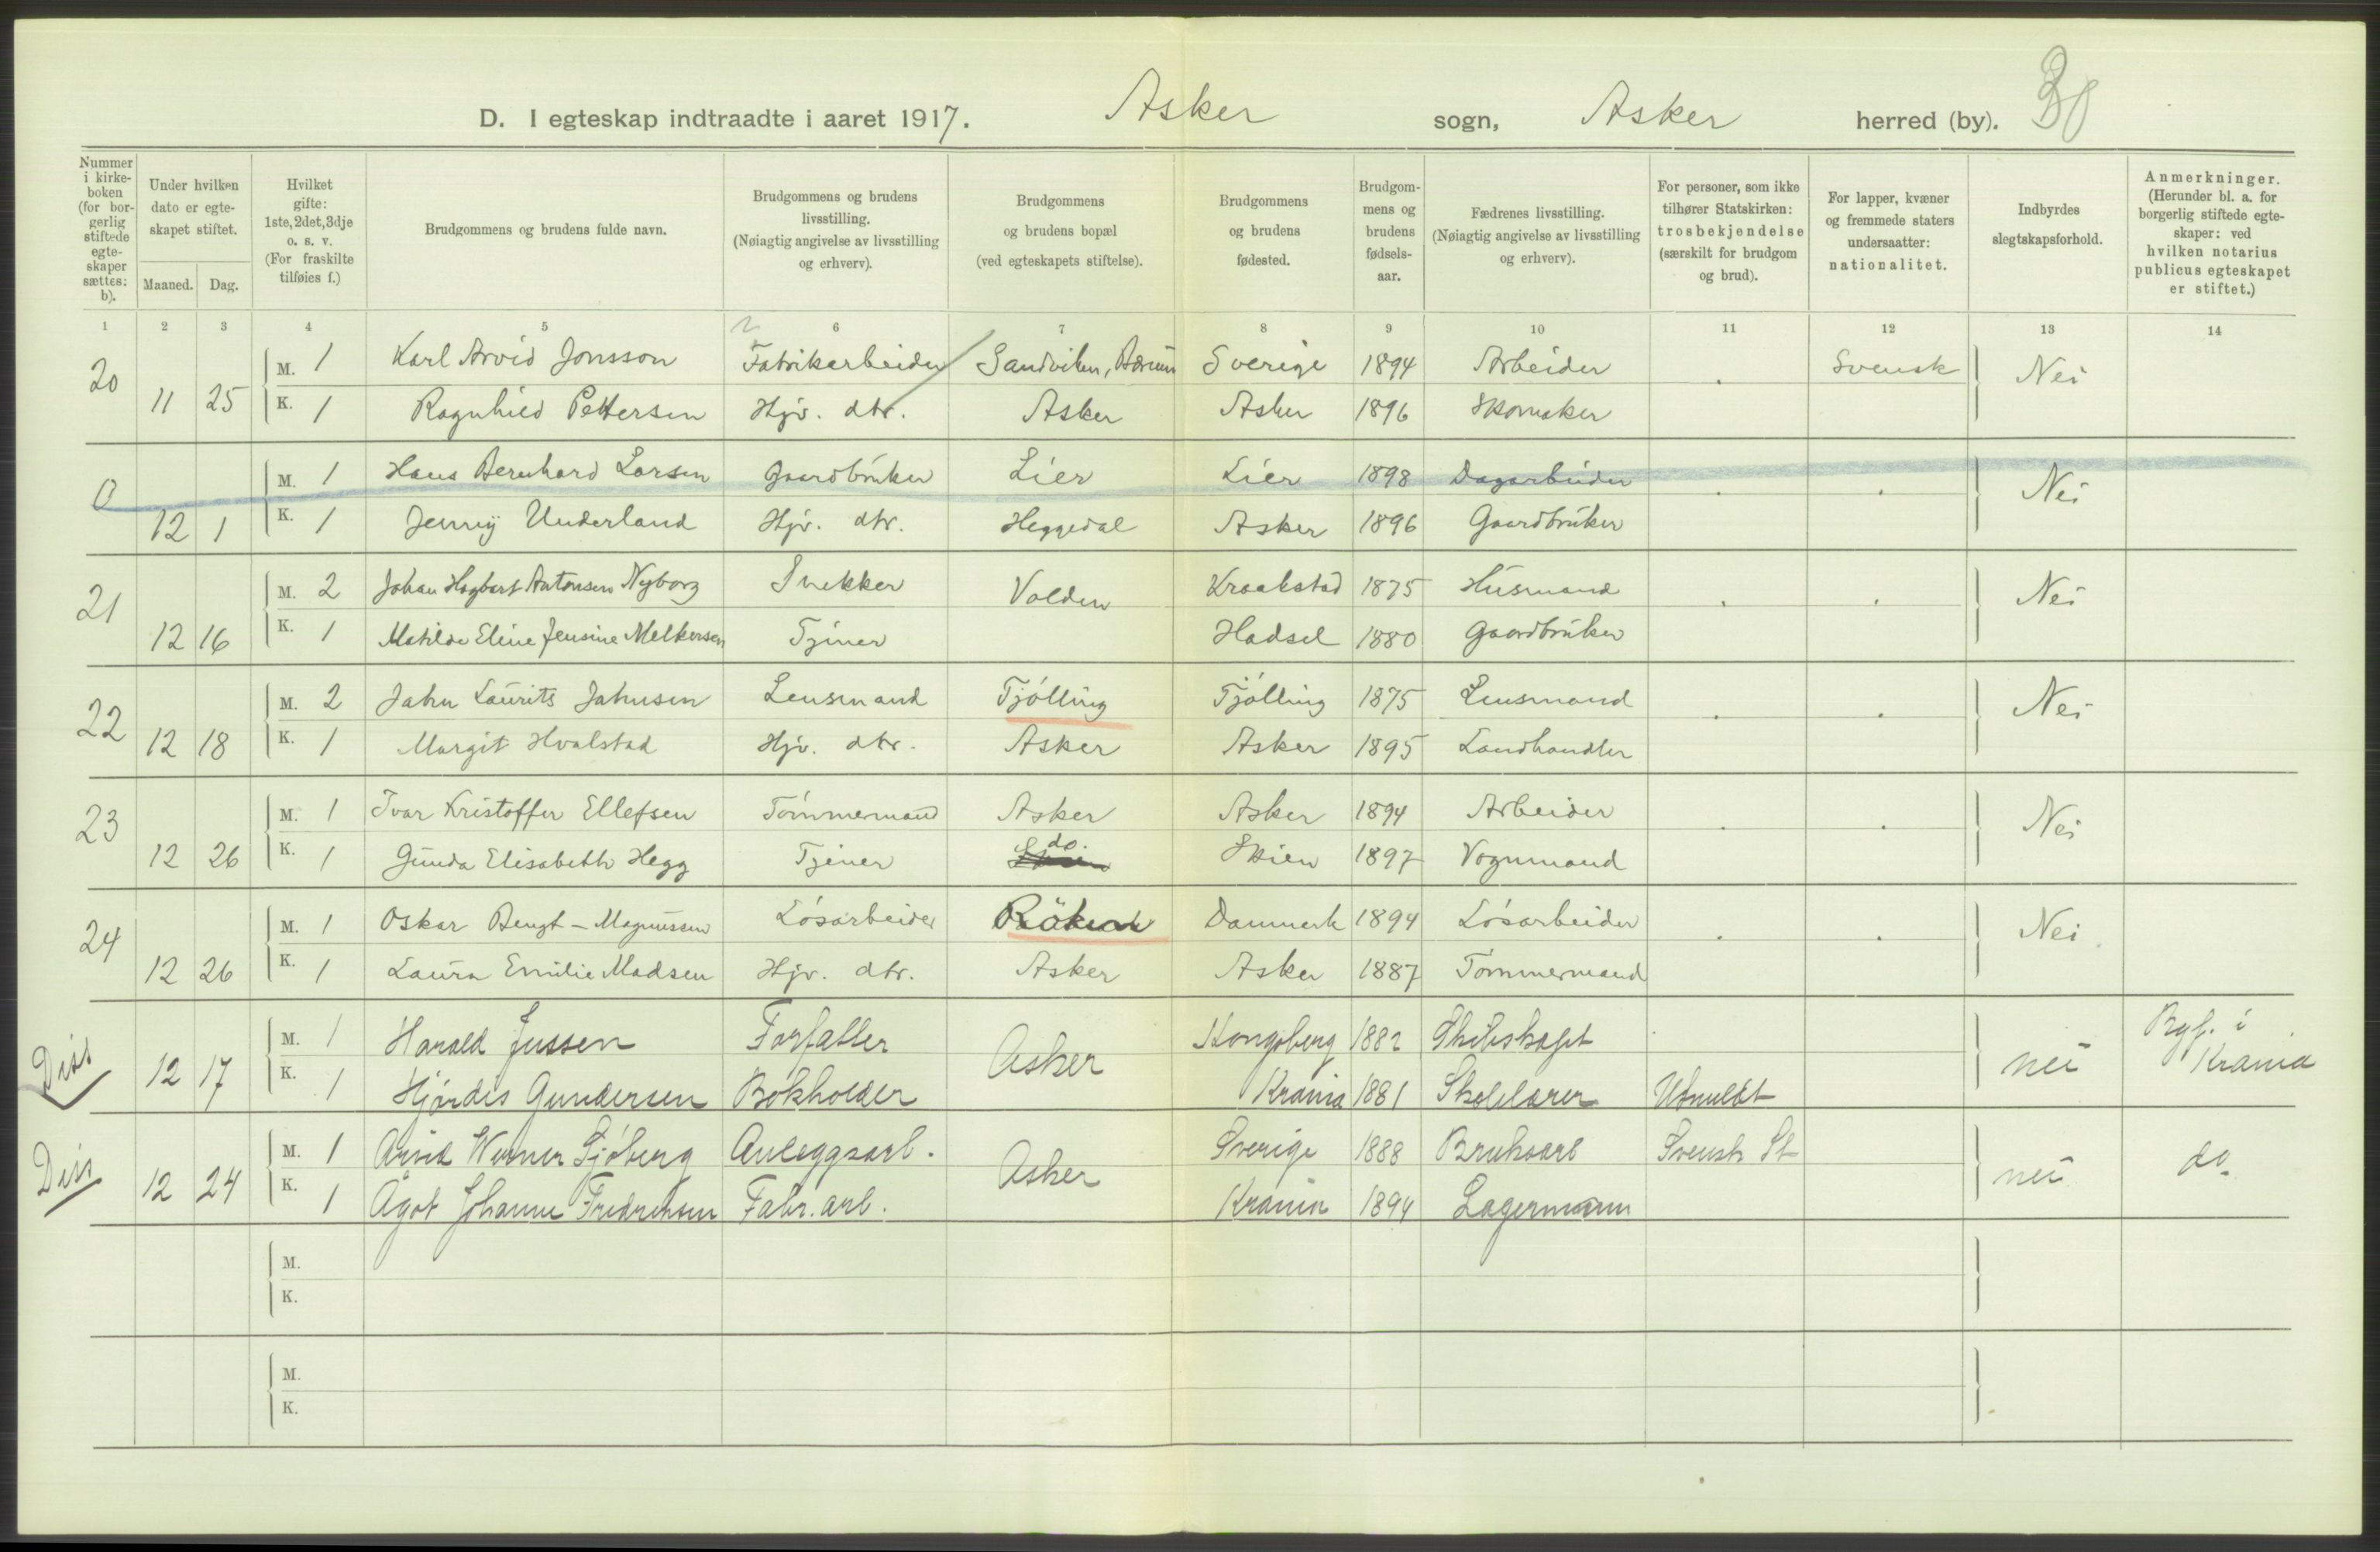 D. I egteskap indtraadte i aaret 1917. Asker sogn, Asker herred (by). 30
Nummer i kirkeboken (for borgerlig stiftede egteskaper sættes: b).
Under hvilken dato er egteskapet stiftet.
Maaned. Dag.
Hvilket gifte: 1ste, 2det, 3dje o. s. v. (For fraskilte tilføies f.)
Brudgommens og brudens fulde navn.
Brudgommens og brudens livsstilling. (Nøiagtig angivelse av livsstilling og erhverv).
Brudgommens og brudens bopæl (ved egteskapets stiftelse).
Brudgommens og brudens fødested.
Brudgommens og brudens fødselsaar.
Fædrenes livsstilling. (Nøiagtig angivelse av livsstilling og erhverv).
For personer, som ikke tilhører Statskirken: trosbekjendelse (særskilt for brudgom og brud).
For lapper, kvæner og fremmede staters undersaatter: nationalitet.
Indbyrdes slegtskapsforhold.
Anmerkninger. (Herunder bl. a. for borgerlig stiftede egteskaper: ved hvilken notarius publicus egteskapet er stiftet.)
1 2 3 4 5 6 7 8 9 10 11 12 13 14
20 M. 1 Karl Arvid Jonsson Fabrikarbeider Sandviken, Bærum Sverige 1894 Arbeider . Svensk Nei
11 25 K. 1 Ragnhild Pettersen Hjv. dtr. Asker Asker 1896 Skomaker
0 M. 1 Hans Bernhard Larsen Gaardbruker Lier Lier 1898 Dagarbeider . . Nei
12 1 K. 1 Jenny Underland Hjv. dtr. Heggedal Asker 1896 Gaardbruker
21 M. 2 Johan Hagbart Antonsen Nyborg Snekker Valden Kraakstad 1875 Husmand . . Nei
12 16 K. 1 Matilde Eline Jensine Melkersen Tjener Hadsel 1880 Gaardbruker
22 M. 2 Jahn Laurits Jahnsen Lensmand Tjølling Tjølling 1875 Lensmand . . Nei
12 18 K. 1 Margit Hvalstad Hjv. dtr. Asker Asker 1895 Landhandler
23 M. 1 Ivar Kristoffer Ellefsen Tømmermand Asker Asker 1894 Arbeider . . Nei
12 26 K. 1 Gunda Elisabeth Hegg Tjener do. Skien 1897 Vognmand
24 M. 1 Oskar Bengt-Magnussen Løsarbeider Røken Danmark 1894 Løsarbeider . . Nei.
12 26 K. 1 Laura Emilie Madsen Hjv. dtr. Asker Asker 1887 Tømmermand
Diss M. 1 Harald Jussen Forfatter Asker Kongsberg 1882 Skibskapt nei Byf. i Krania
12 17 K. 1 Hjørdis Gundersen Bokholder Krania 1881 Skolelærer Utmeldt
Diss M. 1 Arvid Werner Sjøberg Anleggsarb. Asker Sverige 1888 Bruksarb Svensk St nei do
12 24 K. 1 Ågot Johanne Fredriksen Fabr. arb. Krania 1894 Lagermann
M.
K.
M.
K.